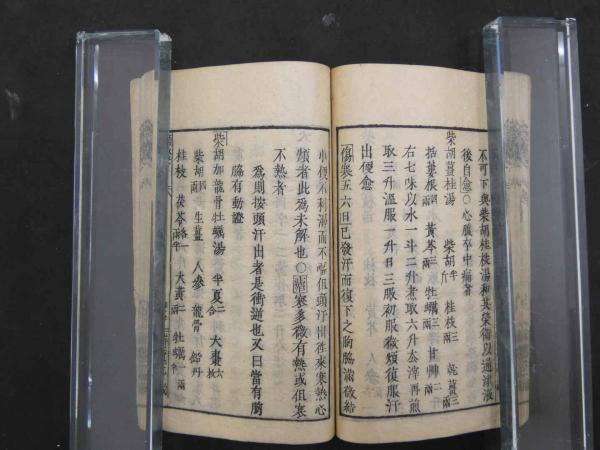 不可下與柴胡桂枝湯和其榮衛以通津液
後自愈〇心腹卒中痛者
柴胡薑桂湯 柴胡半斤 桂枝三兩 乾薑三兩
括蔞根四兩 黃芩三兩 牡蠣三兩 甘艸二兩
右七味以水一斗二升煮取六升去滓再煎
取三升溫服一升日三服初服微煩復服汗
出便愈
傷寒五六日已發汗而復下之胸脇滿微結
小便不利渴而不嘔但頭汗出往來寒熱心
煩者此為未解也〇陽寒多微有熱或但寒
不熱者
為則按頭汗出者是衝逆也又曰當有胸
脇有動證
柴胡加龍骨牡蠣湯 半夏二合 大棗六枚
柴胡四兩 生薑 人參 龍骨 鉛丹
桂枝 茯苓一兩半 大黃二兩 牡蠣一兩半